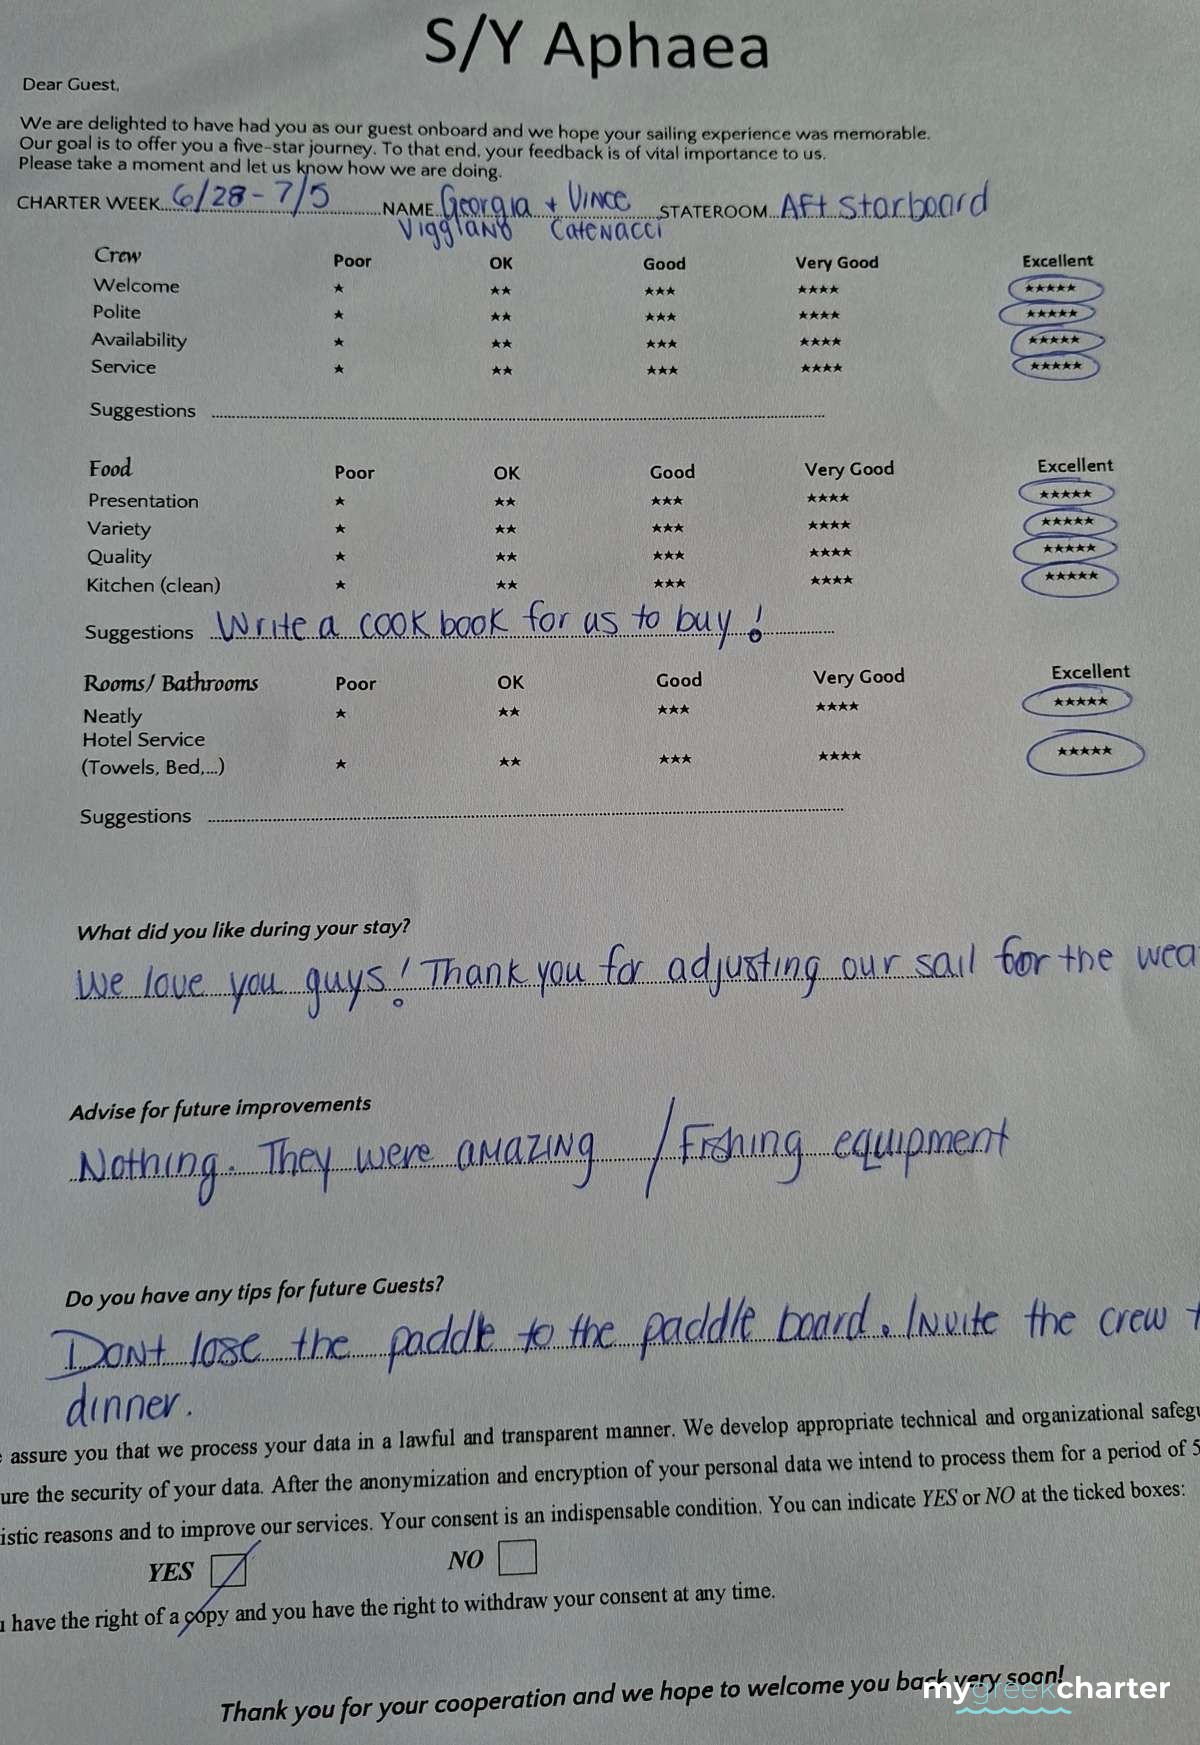 S/Y Aphaea
Dear Guest,
We are delighted to have had you as our guest onboard and we hope your sailing experience was memorable.
Our goal is to offer you a five-star journey. To that end, your feedback is of vital importance to us.
Please take a moment and let us know how we are doing.
CHARTER WEEK 6/28 - 7/5 NAME Georgia + Vince STATEROOM Aft starboard
Viggiano Catenacci
Crew Poor OK Good Very Good Excellent
Welcome ★ ★★ ★★★ ★★★★ ★★★★★
Polite ★ ★★ ★★★ ★★★★ ★★★★★
Availability ★ ★★ ★★★ ★★★★ ★★★★★
Service ★ ★★ ★★★ ★★★★ ★★★★★
Suggestions
Food Poor OK Good Very Good Excellent
Presentation ★ ★★ ★★★ ★★★★ ★★★★★
Variety ★ ★★ ★★★ ★★★★ ★★★★★
Quality ★ ★★ ★★★ ★★★★ ★★★★★
Kitchen (clean) ★ ★★ ★★★ ★★★★ ★★★★★
Suggestions Write a cook book for us to buy!
Rooms/ Bathrooms Poor OK Good Very Good Excellent
Neatly ★ ★★ ★★★ ★★★★ ★★★★★
Hotel Service
(Towels, Bed,...) ★ ★★ ★★★ ★★★★ ★★★★★
Suggestions
What did you like during your stay?
We love you guys! Thank you for adjusting our sail for the wea
Advise for future improvements
Nothing. They were amazing / Fishing equipment
Do you have any tips for future Guests?
Dont lose the paddle to the paddle board. Invite the crew t
dinner.
e assure you that we process your data in a lawful and transparent manner. We develop appropriate technical and organizational safegu
ure the security of your data. After the anonymization and encryption of your personal data we intend to process them for a period of 5
istic reasons and to improve our services. Your consent is an indispensable condition. You can indicate YES or NO at the ticked boxes:
YES NO
u have the right of a copy and you have the right to withdraw your consent at any time.
Thank you for your cooperation and we hope to welcome you back very soon!
mygreekcharter